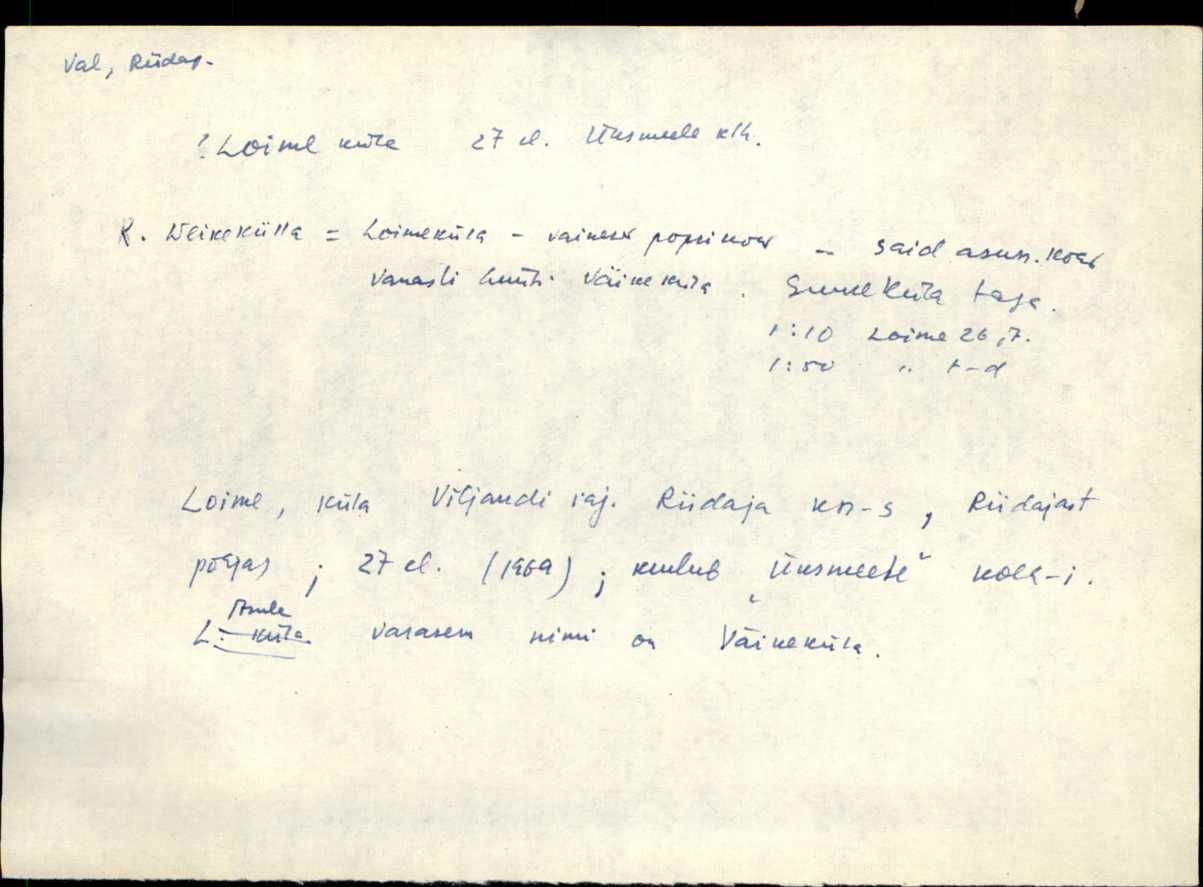 Val, Riidaj.
? Loime küla 27 el. Üksmeele klh.
R. Weikekülla = Loimeküla - väikesed popsikohad - said asun. kohad
vanasti hüüti Väikeküla. Suureküla taga.
1:10 Loime 26,7.
1:50 " t-d
Loime, küla Viljandi raj. Riidaja kn-s, Riidajast
põhjas; 27 el. (1969); kuulub „Üksmeele" kolh-i.
Asula
L. küla varasem nimi on Väikeküla.